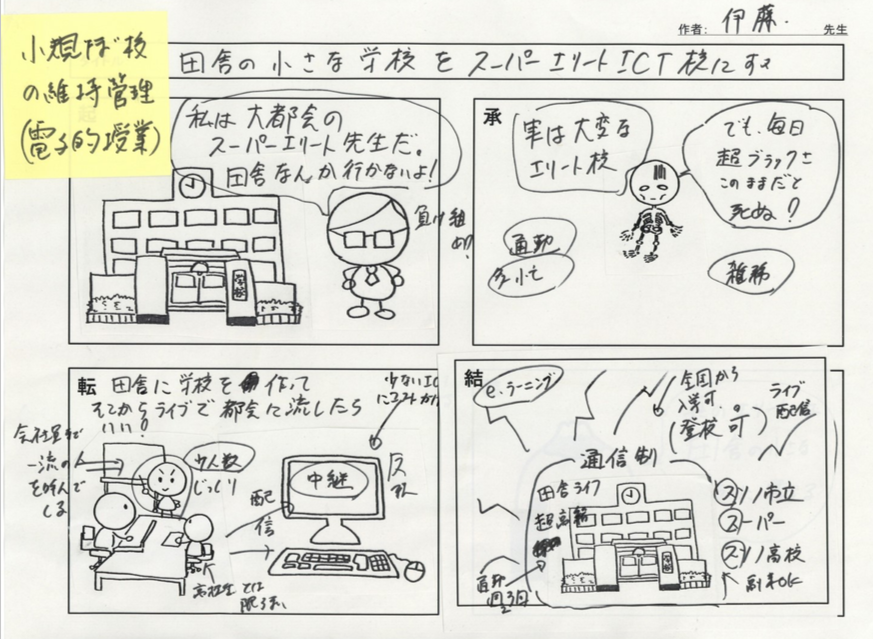 作者: 伊藤. 先生
小規模校
の維持管理
(電子的授業)
田舎の小さな学校をスーパーエリートICT校にす
私は大都会の
スーパーエリート先生だ。
田舎なんか行かないよ!
負け組
め!?
学校
承
実は大変な
エリート校
でも、毎日
超ブラックさ
このままだと
死ぬ?
通勤
雑務
転
田舎に学校を作って
そこからライブで都会に流したら
いい!
会社員で
一流の人
を呼んで
くる
少人数
じっくり
配
信
中継
高校生とは
限らない
結
e.ラーニング
全国から
入学可。
(登校可)
ライブ
配信
通信制
田舎ライフ
超高
スソノ市立
スーパー
スソノ高校
副業OK
通勤
週3日